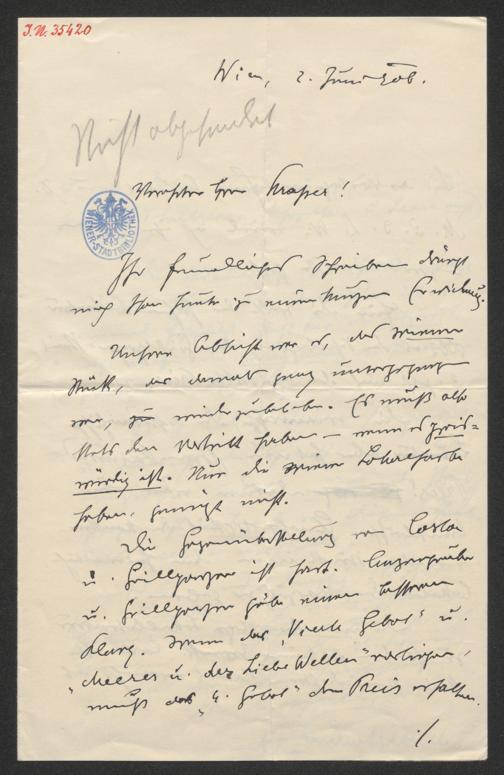 J.N. 35420
Wien, 2. Juni 06.
Nicht abgesendet
Verehrter Herr Krasser!
WIENER-STADTBIBLIOTHEK
Ihr freundliches Schreiben drängt
mich schon heute zu einer kurzen Erwiderung.
Unsere Absicht war es, das Wiener
Stück, das damals ganz untergegangen
war, zu wiederzubeleben. Es muß also
stets den Vortritt haben – wenn es preis=
würdig ist. Nur die Wiener Lokalfarbe
haben, genügt nicht.
Die Gegenüberstellung von Costa
u. Grillparzer ist hart. Anzengruber
u. Grillparzer gäbe einen besseren
Klang. Wenn das „Vierte Gebot" u.
„Meeres u. der Liebe Wellen" vorliegen,
muß das „4. Gebot" den Preis erhalten.
./.